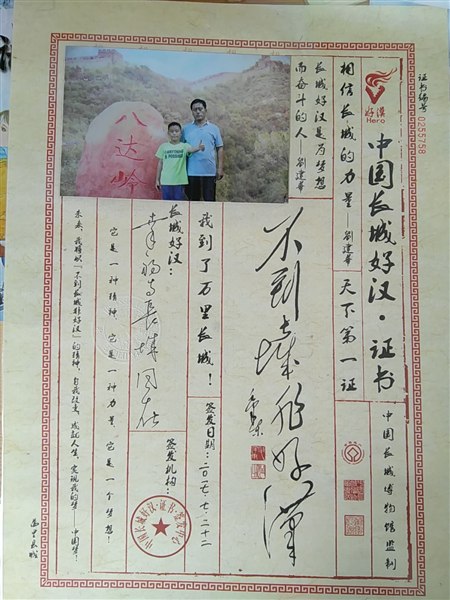 证书编号 0255758
好漢
Hero
中国长城好汉·证书
相信长城的力量——劉建華
天下第一证
中国长城博物馆监制
长城好汉是为梦想
而奋斗的人——劉建華
八达岭
不到长城非好漢
我到了万里长城！
签发日期：二〇一七.七.二十二
长城好汉：
签发机构：
中国长城好汉·证书·签发中心
它是一种精神，它是一种力量，它是一个梦想！
未来，我将以“不到长城非好汉”的精神，自我改变，成就人生，实现我的梦 中国梦！
万里长城